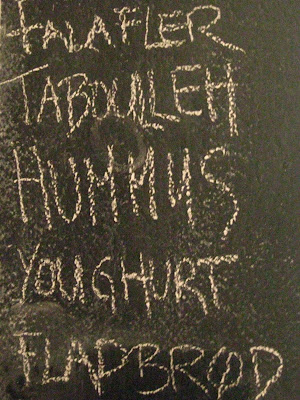 FALAFLER
TABOULLEH
HUMMUS
YOUGHURT
FLADBRØD